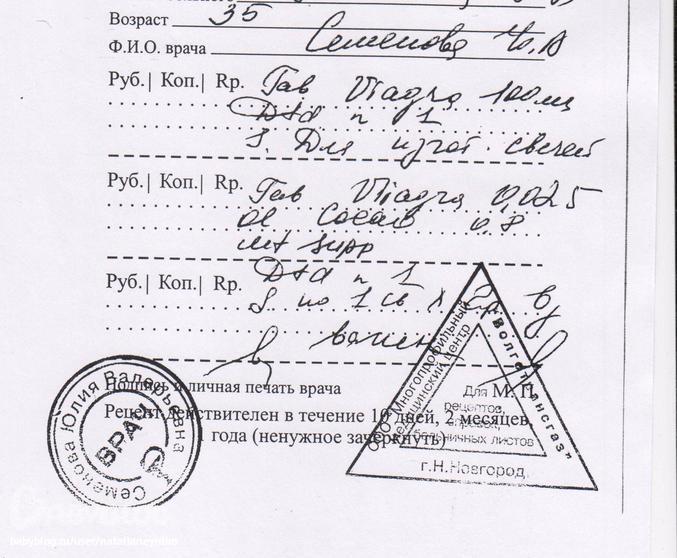 Возраст 35
Ф.И.О. врача Семенова Ю.В
Руб.| Коп.| Rp. Tab Viagra 100мг
Dtd n 1
S. Для изгот. свечей
Руб.| Коп.| Rp. Tab Viagra 0,025
Ol Cacao 0,8
Mf supp
Руб.| Коп.| Rp. Dtd n 1
S по 1 св x 2р в
Подпись и личная печать врача
М. П.
Рецепт действителен в течение 10 дней, 2 месяцев,
1 года (ненужное зачеркнуть)
Семенова Юлия Валерьевна
ВРАЧ
ООО "Многопрофильный
медицинский центр
"Волготрансгаз"
Для
рецептов,
больничных листов
г.Н.Новгород
babyblog.ru/user/